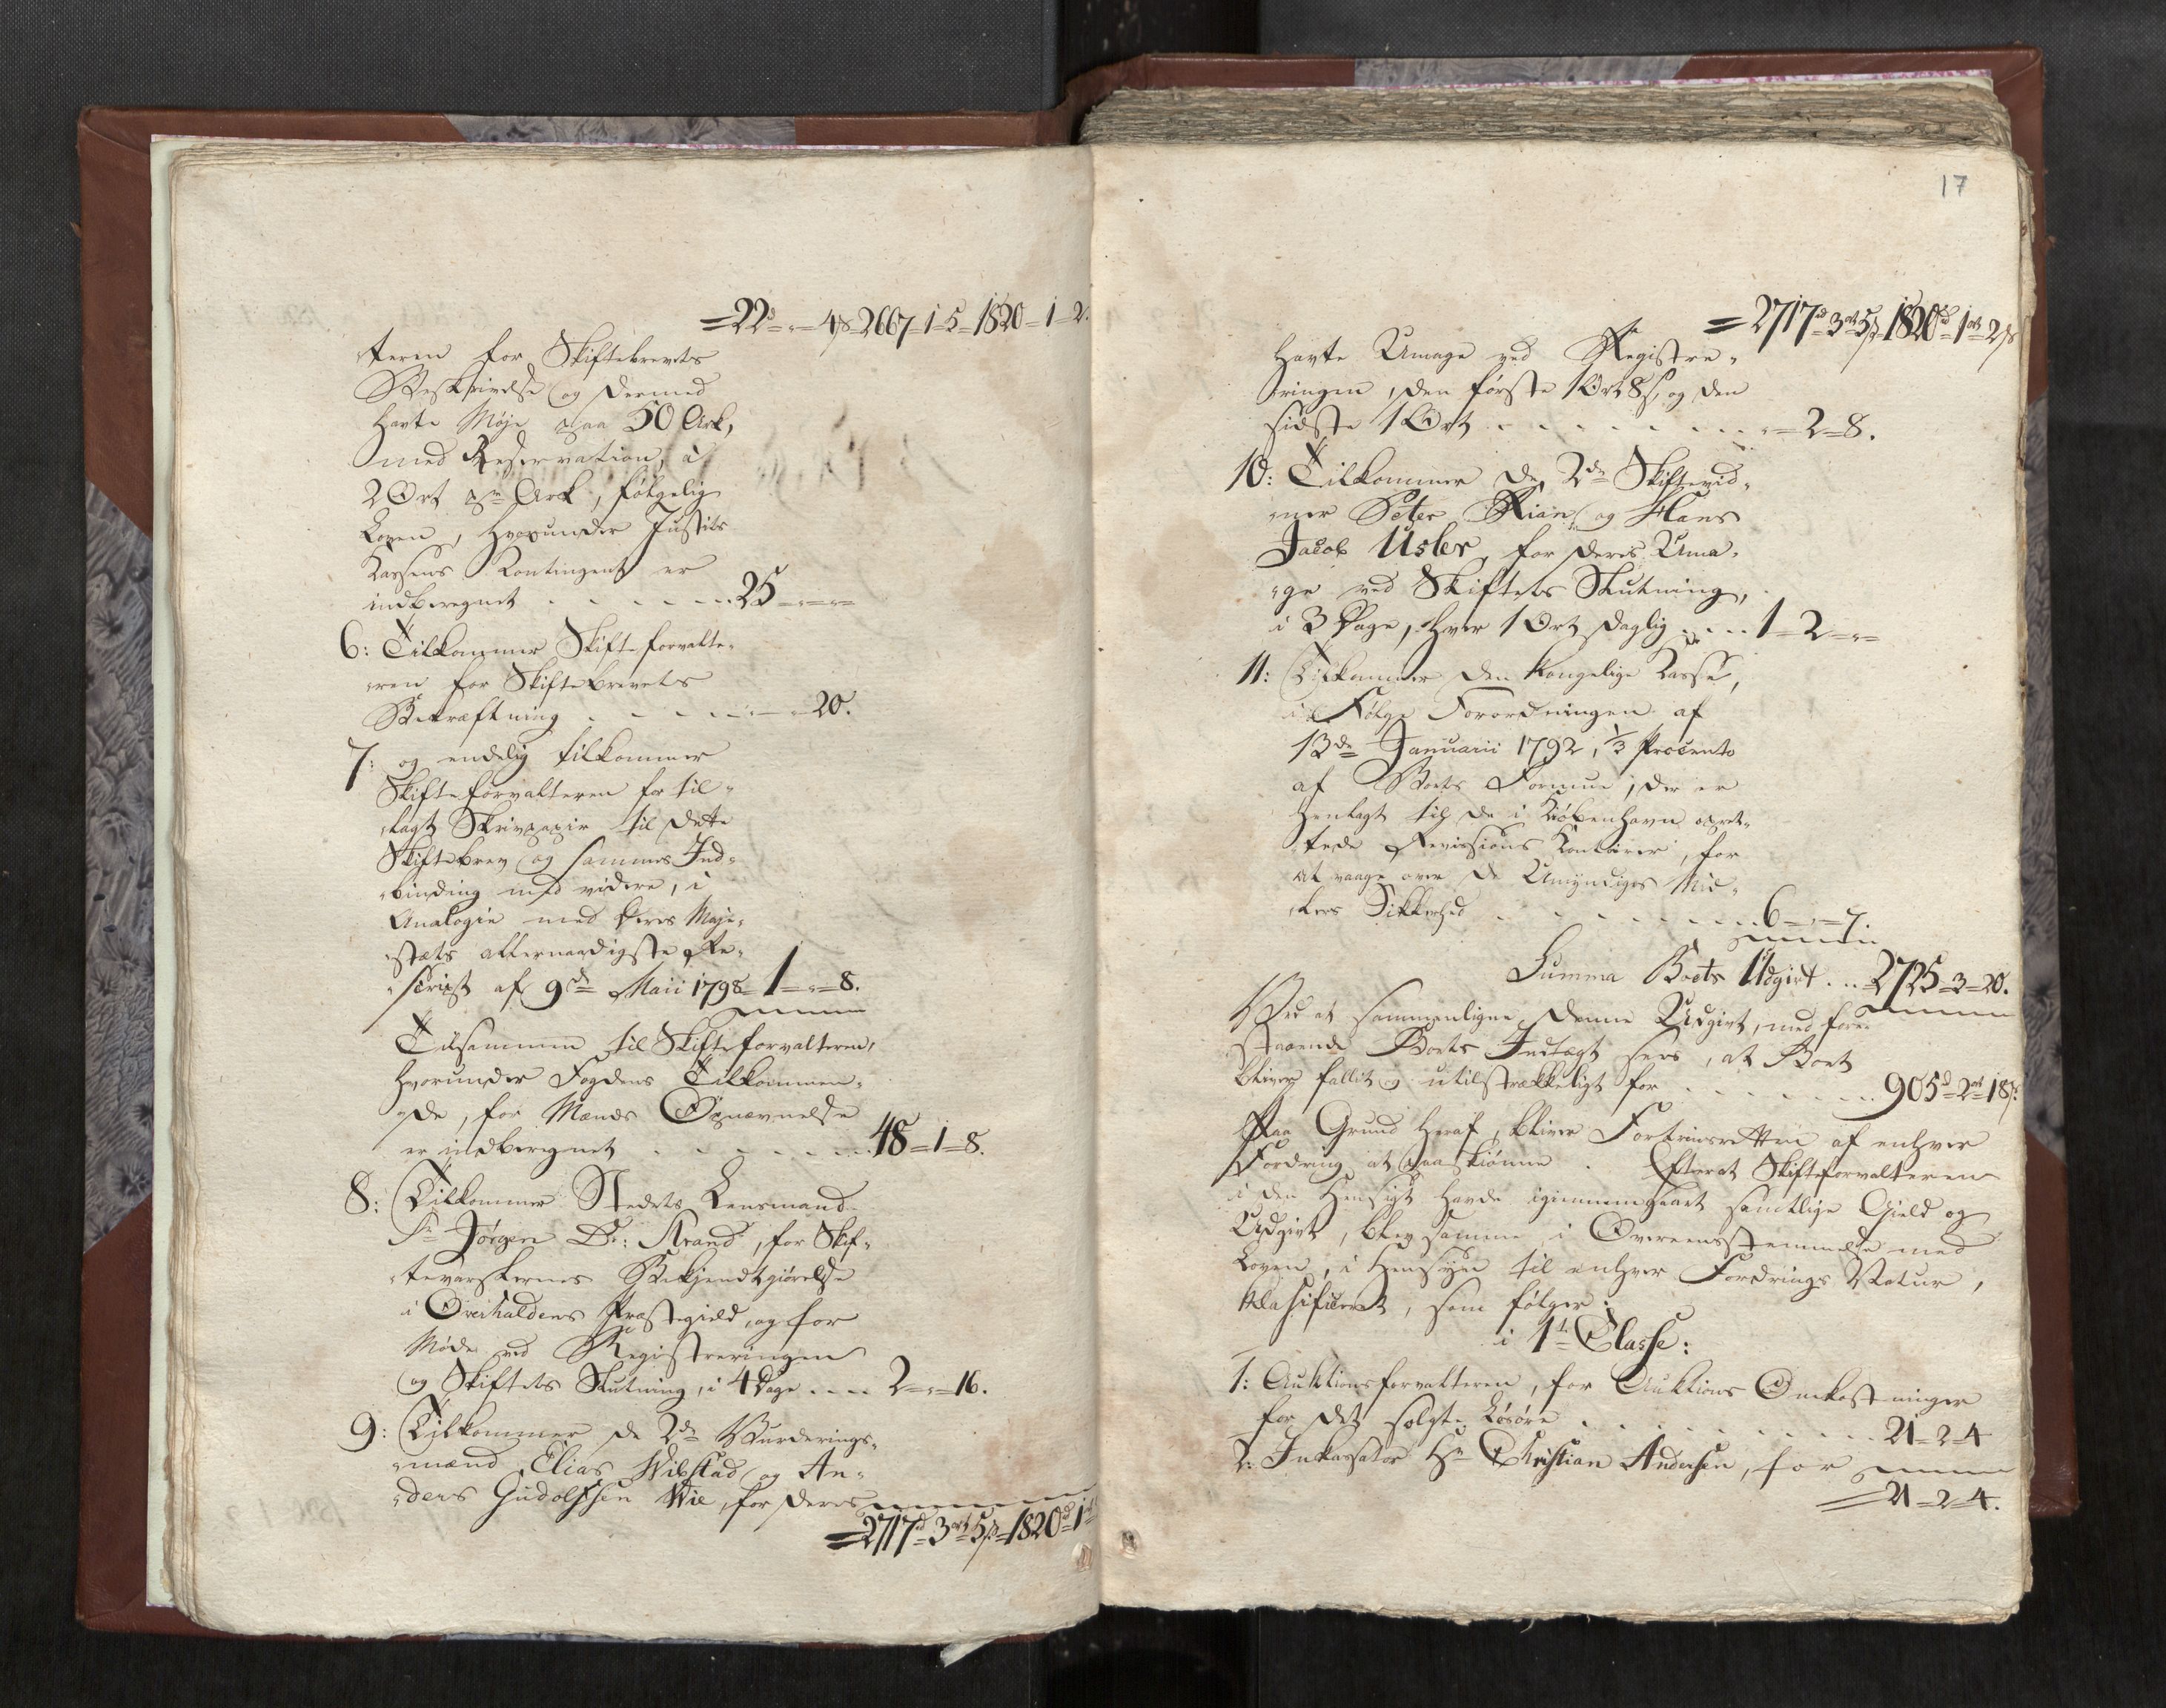 =22d-„-4ß-2667-1-5-1820-1-2.
„teren for Skiftebrevets
Beskrivelse og dermed
havte Møje paa 50 Ark,
med Reservation, à
2 Ort pr Ark, følgelig
Loven, hvorunder Justits
Kassens Kontingent er
indberegnet . . . . . . 25-„-„
6: Tilkommer Skifteforvalte„
„ren for Skiftebrevets
Bekræftning . . . . . „-„-20.
7: og endelig tilkommer
Skifteforvalteren for til„
„lagt Skrivpapir til dette
Skiftebrev og sammes Ind„
„binding med videre, i
Analogie med Deres Maje„
„stæts allernaadigste Re„
„script af 9de Maii 1798 1-„-8.
Tilsammen til Skifteforvalteren,
hvorunder Fogdens Tilkommen„
„de, for Mænds Opnævnelse
er indberegnet . . . . . . 48-1-8.
8: Tilkommer Stedets Lensmand
Sr Jörgen Dr: Strand, for Skif„
„tevarslernes Bekjendtgiörelse
i Overhaldens Præstegield, og for
Møde ved Registreringen
og Skiftets Slutning, i 4 Dage .... 2-„-16.
9: Tilkommer de 2de Vurderings„
„mænd Elias Wibstad og An„
„ders Gudolfsen Wie, for deres
=2717d-3ort5ß-1820d-1
17
=2717d-3ort5ß-1820d-1ort-2ß
havte Umage ved Registre„
„ringen, den förste 1 Ort 8ß, og den
sidste 1 Ort . . . . . . . . „-2-8.
10: Tilkommer de 2de Skiftevid„
„ner Peter Rian og Hans
Jacob Usler, for deres Uma„
„ge ved Skiftets Slutning,
i 3 Dage, hver 1 Ort daglig .... 1-2-„
11: Tilkommer den Kongelige Kasse,
i Følge Forordningen af
13de Januarii 1792, 1/3 Procento
af Boets Formue, der er
henlagt til de i Kiöbenhavn opret„
„tede Revissions Kontoirer, for
at vaage over de Umyndiges Mid„
„lers Sikkerhed . . . . . . . 6-„-7.
Summa Boets Udgivt ... 2725-3-20.
Ved at sammenligne denne Udgivt, med fore„
staaende Boets Indtægt sees, at Boet
bliver fallit og utilstrækkeligt for . . . . . . . 905d-2ort-18ß.
Paa Grund heraf, bliver Fortrinsretten af enhver
Fordring at paaskiönne. Efterat Skifteforvalteren
i den Hensigt havde igiennemgaaet samtlige Gield og
Udgivt, blev samme i Overeensstemmelse med
Loven, i Hensyn til enhver Fordrings Natur,
klassificeret, som følger:
i 1te Classe:
1: Auktionsforvalteren, for Auktions Omkostninger
for det solgte Løsøre . . . . . . . . . . 21-2-4
2: Inkassator Hr Christian Andersen, for
=21-2-4.